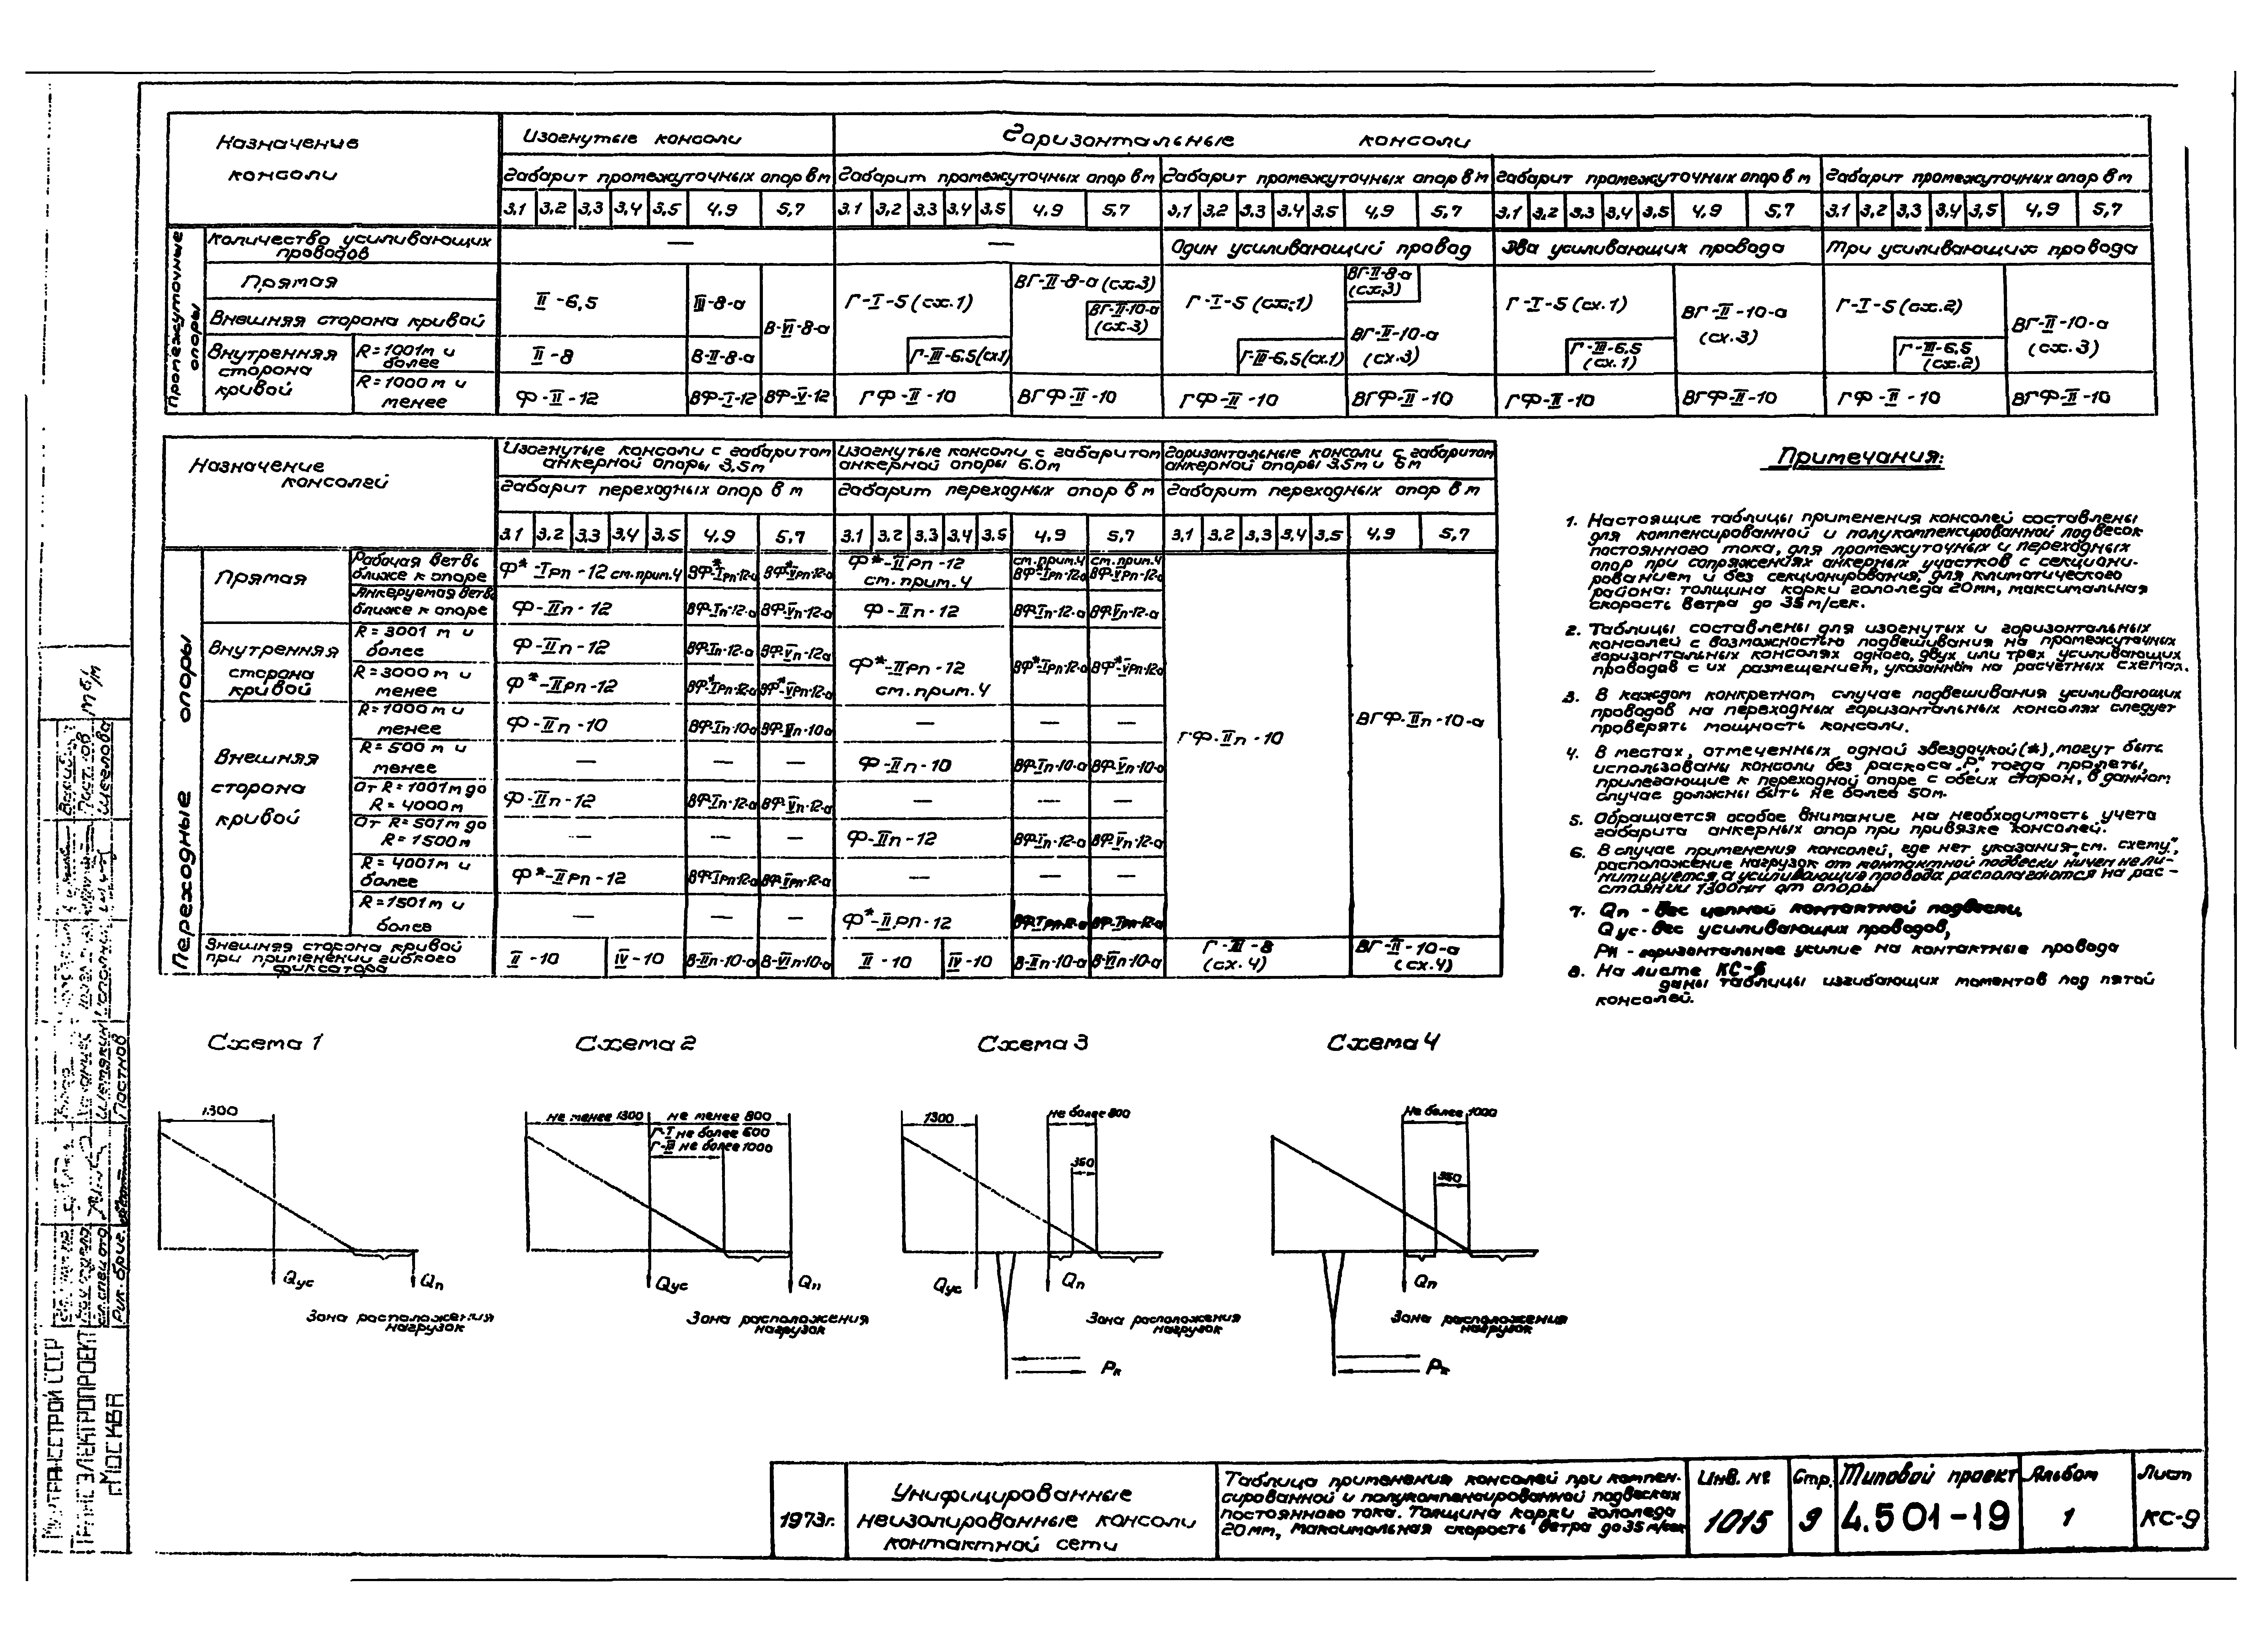 Назначение консоли
Изогнутые консоли
Горизонтальные консоли
Габарит промежуточных опор в м
Габарит промежуточных опор в м
Габарит промежуточных опор в м
Габарит промежуточных опор в м
Габарит промежуточных опор в м
3.1 3,2 3,3 3,4 3,5 4,9 5,7
3.1 3,2 3,3 3,4 3,5 4,9 5,7
3,1 3,2 3,3 3,4 3,5 4,9 5,7
3,1 3,2 3,3 3,4 3,5 4,9 5,7
3,1 3,2 3,3 3,4 3,5 4,9 5,7
Промежуточные опоры
Количество усиливающих проводов
— — Один усиливающий провод Два усиливающих провода Три усиливающих провода
Прямая
Внешняя сторона кривой
II-6,5 III-8-а В-VI-8-а Г-I-5 (сх.1) ВГ-II-8-а (сх.3) ВГ-II-10-а (сх.3)
Г-I-5 (сх.1) ВГ-II-8-а (сх.3) ВГ-II-10-а (сх.3)
Г-I-5 (сх.1) ВГ-II-10-а (сх.3)
Г-I-5 (сх.2) ВГ-II-10-а (сх.3)
Внутренняя сторона кривой
R=1001м и более
II-8 В-II-8-а Г-III-6,5(сх1) Г-III-6,5 (сх.1) Г-III-6,5 (сх.1) Г-III-6,5 (сх.2)
R=1000 м и менее
Ф-II-12 ВФ-I-12 ВФ-V-12 ГФ-II-10 ВГФ-II-10 ГФ-II-10 ВГФ-II-10 ГФ-II-10 ВГФ-II-10 ГФ-II-10 ВГФ-II-10
Назначение консолей
Изогнутые консоли с габаритом анкерной опоры 3,5м
Изогнутые консоли с габаритом анкерной опоры 6.0м
Горизонтальные консоли с габаритом анкерной опоры 3.5м и 6м
Габарит переходных опор в м
Габарит переходных опор в м
Габарит переходных опор в м
3.1 3,2 3.3 3,4 3,5 4,9 5,7
3.1 3,2 3.3 3,4 3,5 4,9 5,7
3,1 3,2 3,3 3,4 3,5 4,9 5,7
Переходные опоры
Прямая
Рабочая ветвь ближе к опоре
Ф*-Iрп-12 см.прим.4 ВФ*-Iрп-12-а ВФ*-Vрп-12-а Ф*-IIрп-12 см.прим.4 см.прим.4 ВФ-Iрп-12-а см.прим.4 ВФ-Vрп-12-а
Анкеруемая ветвь ближе к опоре
Ф-IIп-12 ВФ-Iп-12-а ВФ-Vп-12-а Ф-IIп-12 ВФ-Iп-12-а ВФ-Vп-12-а
Внутренняя сторона кривой
R=3001 м и более
Ф-IIп-12 ВФ-Iп-12-а ВФ-Vп-12а
R=3000 м и менее
Ф*-IIрп-12 ВФ*-Iрп-12-а ВФ*-Vрп-12-а Ф*-IIрп-12 см.прим.4 ВФ*-Iрп-12-а ВФ*-Vрп-12-а
Внешняя сторона кривой
R=1000 м и менее
Ф-IIп-10 ВФ-Iп-10а ВФ-VIп-10а — — —
R=500 м и менее
— — — Ф-IIп-10 ВФ-Iп-10-а ВФ-Vп-10-а
ГФ-IIп-10 ВГФ-IIп-10-а
От R=1001м до R=4000м
Ф-IIп-12 ВФ-Iп-12-а ВФ-Vп-12-а — — —
От R=501м до R=1500м
— — — Ф-IIп-12 ВФ-Iп-12-а ВФ-Vп-12-а
R=4001м и более
Ф*-IIрп-12 ВФ-Iрп-12-а ВФ-Vрп-12-а — — —
R=1501м и более
— — — Ф*-IIрп-12
Внешняя сторона кривой при применении гибкого фиксатора
II-10 IV-10 В-IIп-10-а В-VIп-10-а II-10 IV-10 В-IIп-10-а В-VIп-10-а Г-III-8 (сх.4) ВГ-II-10-а (сх.4)
Примечания:
1. Настоящие таблицы применения консолей составлены
для компенсированной и полукомпенсированной подвесок
постоянного тока, для промежуточных и переходных
опор при сопряжениях анкерных участков с секциони-
рованием и без секционирования, для климатического
района: толщина корки гололеда 20мм, максимальная
скорость ветра до 35м/сек.
2. Таблицы составлены для изогнутых и горизонтальных
консолей с возможностью подвешивания на промежуточных
горизонтальных консолях одного, двух или трех усиливающих
проводов с их размещением, указанном на расчетных схемах.
3. В каждом конкретном случае подвешивания усиливающих
проводов на переходных горизонтальных консолях следует
проверять мощность консоли.
4. В местах, отмеченных одной звездочкой(*), могут быть
использованы консоли без раскоса „Р", тогда пролеты,
прилегающие к переходной опоре с обеих сторон, в данном
случае должны быть не более 50м.
5. Обращается особое внимание на необходимость учета
габарита анкерных опор при привязке консолей.
6. В случае применения консолей, где нет указания „см. схему",
расположение нагрузок от контактной подвески ничем не ли-
митируется, а усиливающие провода располагаются на рас-
стоянии 1300мм от опоры
7. Qп - вес цепной контактной подвески,
Qус - вес усиливающих проводов,
Рк - горизонтальное усилие на контактные провода
8. На листе КС-6
даны таблицы изгибающих моментов под пятой
консолей.
Схема 1
1300
Qус Qп
Зона расположения нагрузок
Схема 2
не менее 1300 не менее 800
Г-I не более 600
Г-III не более 1000
Qус Qп
Зона расположения нагрузок
Схема 3
1300 не более 800
350
Qус Qп
Зона расположения нагрузок
Рк
Схема 4
не более 1000
350
Qп
Зона расположения нагрузок
Рк
МИНТРАНССТРОЙ СССР
ТРАНСЭЛЕКТРОПРОЕКТ
г. МОСКВА
Рук. бриг.
Постнов
Щеглова
1973г.
Унифицированные
неизолированные консоли
контактной сети
Таблица применения консолей при компен-
сированной и полукомпенсированной подвесках
постоянного тока. Толщина корки гололеда
20мм, максимальная скорость ветра до 35 м/сек
Инв. №
1015
Стр.
9
Типовой проект
4.501-19
Альбом
1
Лист
КС-9